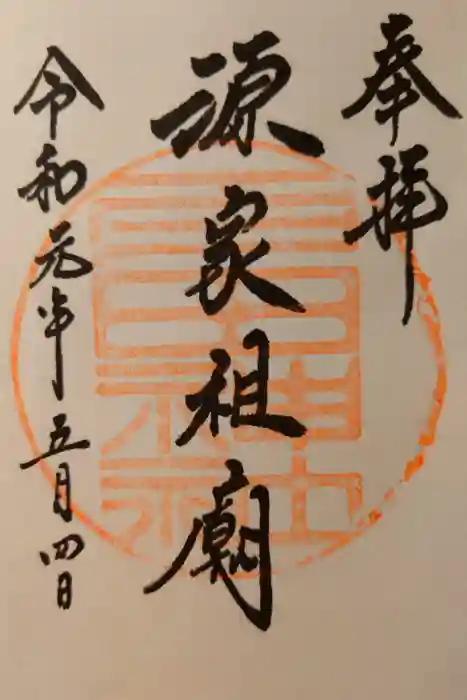 奉拝
源家祖廟
令和元年五月四日